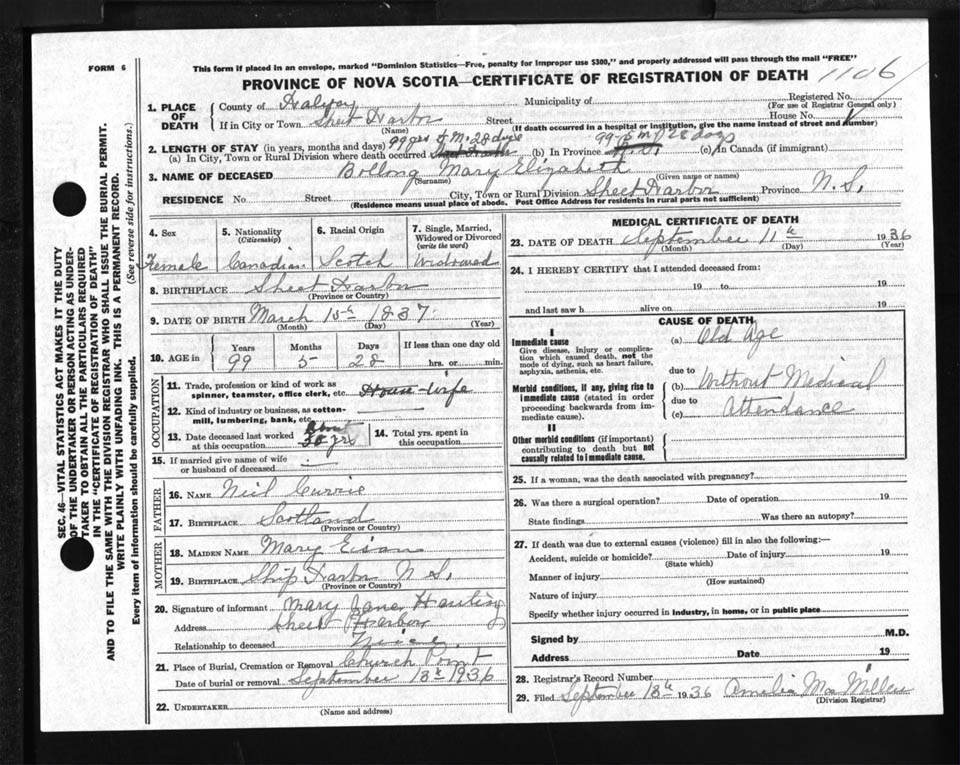 FORM 6
This form if placed in an envelope, marked "Dominion Statistics—Free, penalty for improper use $300," and properly addressed will pass through the mail "FREE"
PROVINCE OF NOVA SCOTIA—CERTIFICATE OF REGISTRATION OF DEATH
1106
Registered No.
(For use of Registrar General only)
1. PLACE OF DEATH
County of Halifax Municipality of
If in City or Town Sheet Harbor Street House No.
(Name) (If death occurred in a hospital or institution, give the name instead of street and number)
2. LENGTH OF STAY (in years, months and days) 99 yrs 5 M. 28 days 99 5 m 28 days
(a) In City, Town or Rural Division where death occurred (b) In Province N.S. (c) In Canada (if immigrant)
3. NAME OF DECEASED Bollong Mary Elizabeth
(Surname) (Given name or names)
RESIDENCE No. Street City, Town or Rural Division Sheet Harbor Province N.S.
(Residence means usual place of abode. Post Office Address for residents in rural parts not sufficient)
4. Sex
Female
5. Nationality
(Citizenship)
Canadian
6. Racial Origin
Scotch
7. Single, Married, Widowed or Divorced
(write the word)
Widowed
8. BIRTHPLACE Sheet Harbor
(Province or Country)
9. DATE OF BIRTH March 13th 1837
(Month) (Day) (Year)
10. AGE in
Years Months Days If less than one day old
99 5 28 hrs. or min.
OCCUPATION
11. Trade, profession or kind of work as
spinner, teamster, office clerk, etc. House-wife
12. Kind of industry or business, as cotton-
mill, lumbering, bank, etc.
13. Date deceased last worked
at this occupation About 30 yrs
14. Total yrs. spent in
this occupation
15. If married give name of wife
or husband of deceased
FATHER
16. NAME Neil Currie
17. BIRTHPLACE Scotland
(Province or Country)
MOTHER
18. MAIDEN NAME Mary
19. BIRTHPLACE Ship Harbor N.S.
(Province or Country)
20. Signature of informant Mary Jane
Address Sheet Harbor
Relationship to deceased Niece
21. Place of Burial, Cremation or Removal Church Point
Date of burial or removal September 13th 1936
22. UNDERTAKER
(Name and address)
MEDICAL CERTIFICATE OF DEATH
23. DATE OF DEATH September 11th 1936
(Month) (Day) (Year)
24. I HEREBY CERTIFY that I attended deceased from:
19 to 19
and last saw h alive on 19
CAUSE OF DEATH
I
Immediate cause
Give disease, injury or complica-
tion which caused death, not the
mode of dying, such as heart failure,
asphyxia, asthenia, etc.
(a) Old Age
due to
Morbid conditions, if any, giving rise to
immediate cause (stated in order
proceeding backwards from im-
mediate cause).
(b) Without Medical
due to
(c) Attendance
II
Other morbid conditions (if important)
contributing to death but not
causally related to immediate cause.
25. If a woman, was the death associated with pregnancy?
26. Was there a surgical operation? Date of operation 19
State findings Was there an autopsy?
27. If death was due to external causes (violence) fill in also the following:—
Accident, suicide or homicide? Date of injury 19
(State which)
Manner of injury
(How sustained)
Nature of injury
Specify whether injury occurred in industry, in home, or in public place
Signed by M.D.
Address Date 19
28. Registrar's Record Number
29. Filed September 13th 1936 Amelia
(Division Registrar)
SEC. 46—VITAL STATISTICS ACT MAKES IT THE DUTY
OF THE UNDERTAKER OR PERSON ACTING AS UNDER-
TAKER TO OBTAIN ALL THE PARTICULARS REQUIRED
IN THE "CERTIFICATE OF REGISTRATION OF DEATH"
AND TO FILE THE SAME WITH THE DIVISION REGISTRAR WHO SHALL ISSUE THE BURIAL PERMIT.
WRITE PLAINLY WITH UNFADING INK. THIS IS A PERMANENT RECORD.
Every item of information should be carefully supplied. (See reverse side for instructions.)